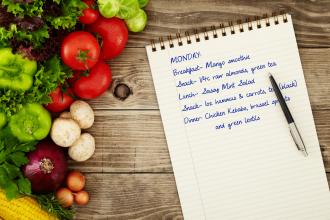 MONDAY:
Breakfast- Mango smoothie
Snack- raw almonds, green tea
Lunch- Sassy Mint Salad
Snack- hummus & carrots, tea (black)
Dinner- Chicken Kebabs, brussel
and green lentils